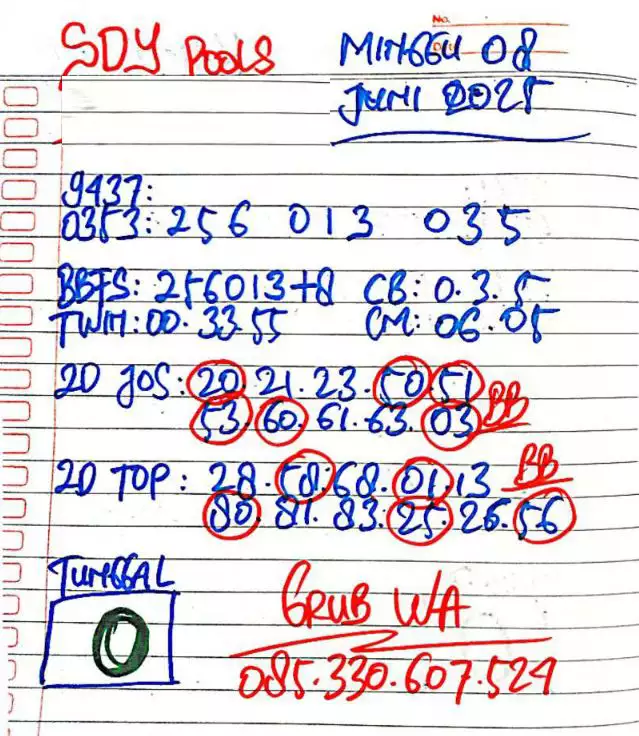 SDY POOLS
No.
MINGGU 08
JUNI 2025
9437:
0353: 256 013 035
BBFS: 256013+8 CB: 0.3.5
TWIN: 00.33.55 CM: 06.05
2D JOS: 20.21.23.50.51
53.60.61.63.03 BB
2D TOP: 28.58.68.01.13 BB
80.81.83.25.26.56
TUNGGAL
0
GRUB WA
085.330.607.524